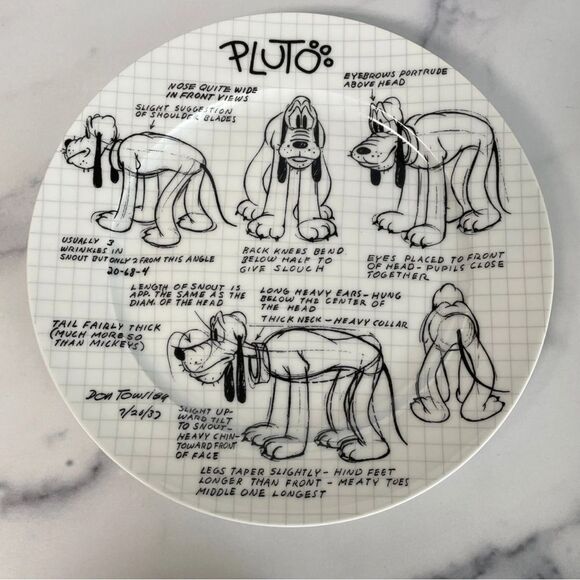 PLUTO
NOSE QUITE WIDE
IN FRONT VIEWS
SLIGHT SUGGESTION
OF SHOULDER BLADES
EYEBROWS PORTRUDE
ABOVE HEAD
USUALLY 3
WRINKLES IN
SNOUT BUT ONLY 2 FROM THIS ANGLE
20-68-4
BACK KNEES BEND
BELOW HALF TO
GIVE SLOUCH
EYES PLACED TO FRONT
OF HEAD - PUPILS CLOSE
TOGETHER
LENGTH OF SNOUT IS
APP. THE SAME AS THE
DIAM. OF THE HEAD
LONG HEAVY EARS - HUNG
BELOW THE CENTER OF
THE HEAD
THICK NECK - HEAVY COLLAR
TAIL FAIRLY THICK
(MUCH MORE SO
THAN MICKEYS)
Don Towsley
SLIGHT UP-
WARD TILT
TO SNOUT-
HEAVY CHIN-
TOWARD FRONT
OF FACE
LEGS TAPER SLIGHTLY - HIND FEET
LONGER THAN FRONT - MEATY TOES
MIDDLE ONE LONGEST